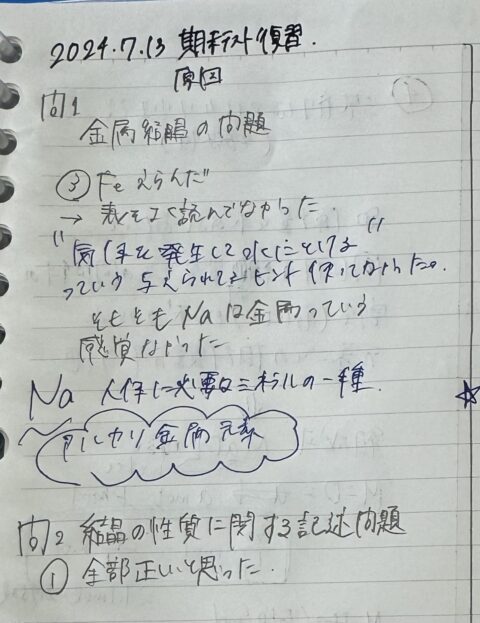 2024.7.13 期末テスト復習.
原因
問1
金属結晶の問題
③ Feえらんだ
→ 表をよく読んでなかった
"気体を発生して水にとける"
っていう与えられてたヒント使ってなかった。
そもそもNaは金属っていう
感覚なかった
Na 人体に必要なミネラルの一種
アルカリ金属元素
問2 結晶の性質に関する記述問題
① 全部正しいと思った.